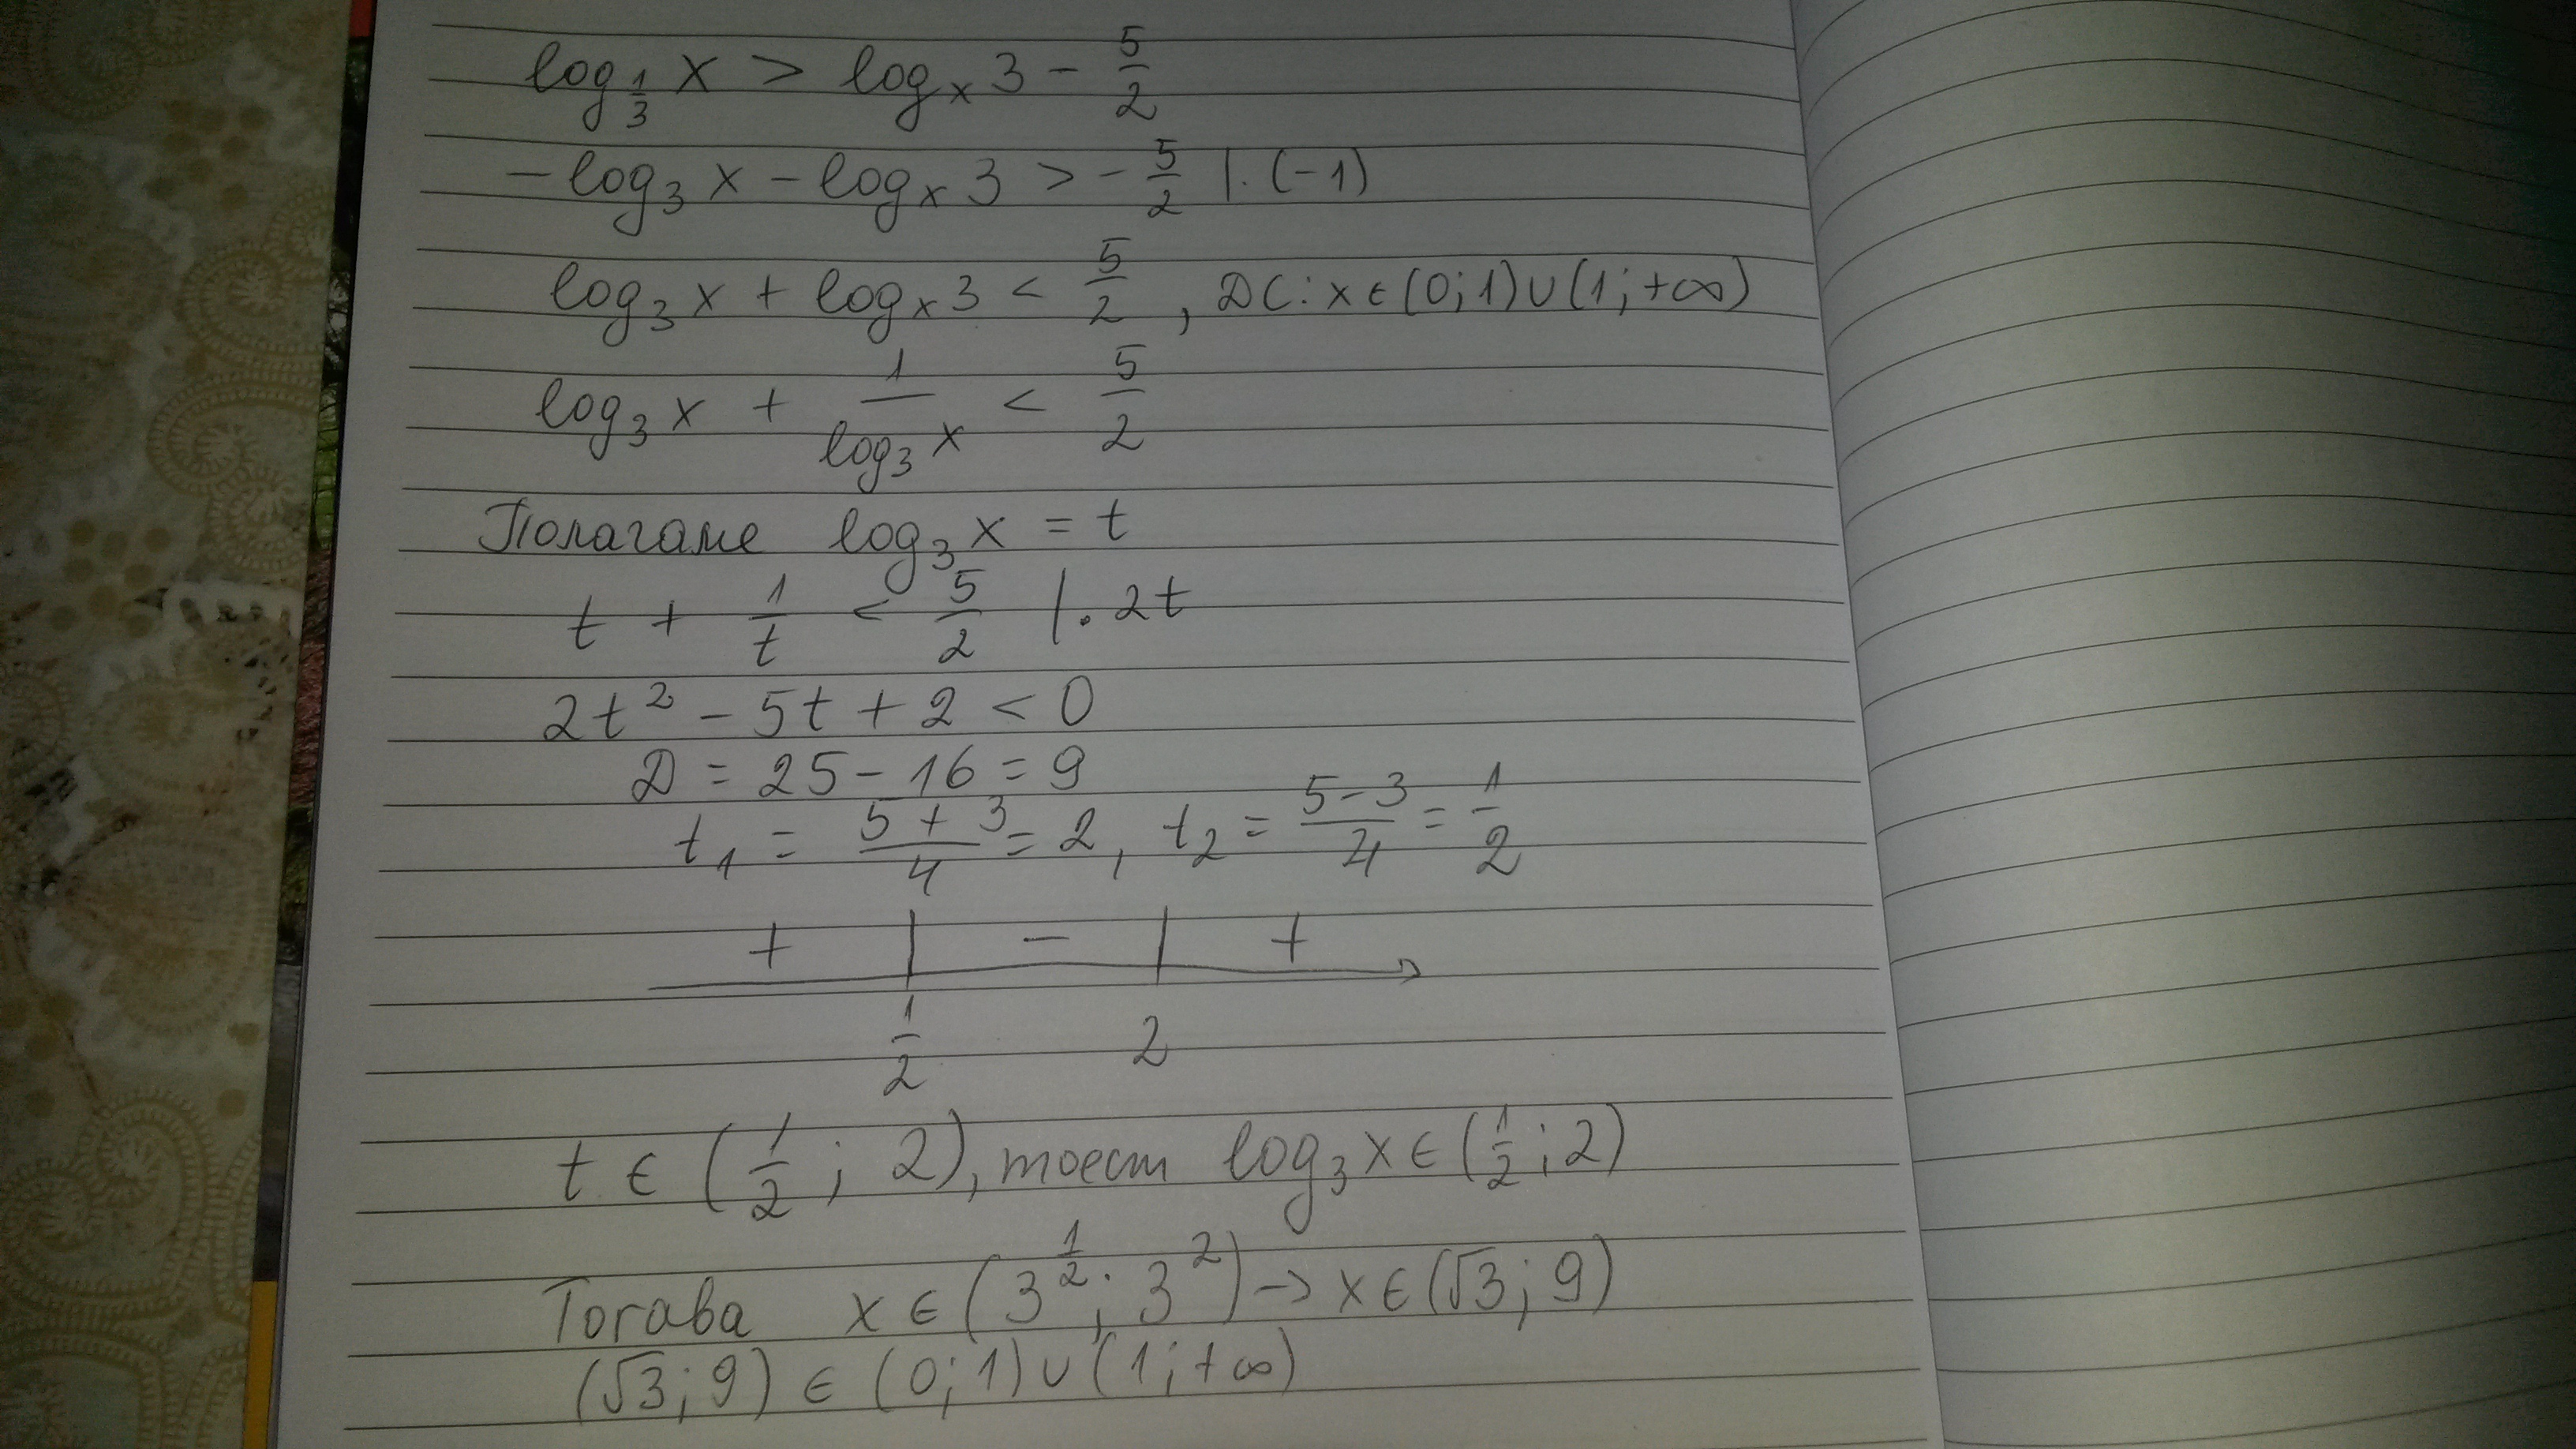 log_{1/3} x > log_x 3 - 5/2
-log_3 x - log_x 3 > -5/2 |.(-1)
log_3 x + log_x 3 < 5/2, ДС: x ∈ (0;1)∪(1;+∞)
log_3 x + 1/log_3 x < 5/2
Полагаме log_3 x = t
t + 1/t < 5/2 |. 2t
2t² - 5t + 2 < 0
D = 25 - 16 = 9
t_1 = (5+3)/4 = 2, t_2 = (5-3)/4 = 1/2
+ | - | +
1/2 2
t ∈ (1/2; 2), тоест log_3 x ∈ (1/2; 2)
Тогава x ∈ (3^{1/2}; 3^2) → x ∈ (√3; 9)
(√3; 9) ∈ (0;1)∪(1;+∞)